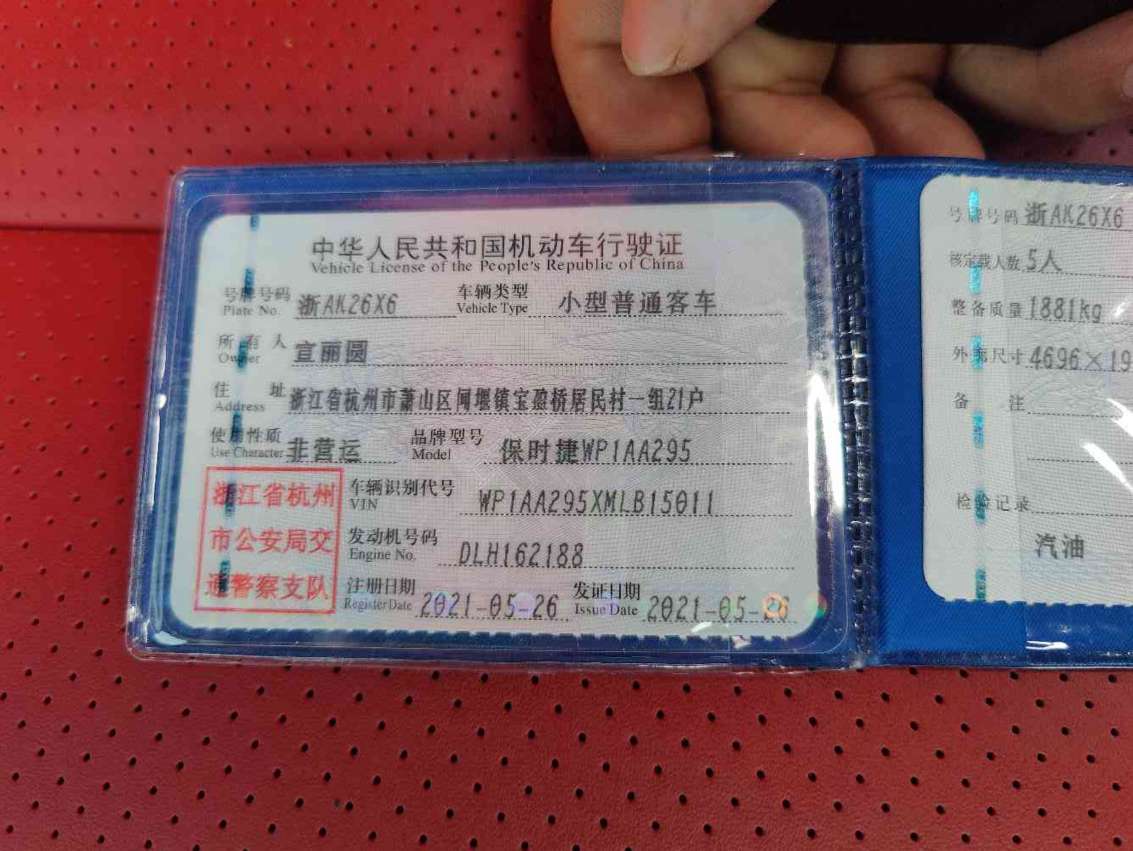 中华人民共和国机动车行驶证
Vehicle License of the People's Republic of China
号牌号码 浙AK26X6 车辆类型 小型普通客车
Plate No. Vehicle Type
所有人 宣丽圆
Owner
住址 浙江省杭州市萧山区闻堰镇宝盈桥居民村一组21户
Address
使用性质 非营运 品牌型号 保时捷WP1AA295
Use Character Model
浙江省杭州
市公安局交
通警察支队
车辆识别代号 WP1AA295XMLB15011
VIN
发动机号码 DLH162188
Engine No.
注册日期 2021-05-26 发证日期 2021-05-26
Register Date Issue Date
号牌号码 浙AK26X6
核定载人数 5人
整备质量 1881kg
外廓尺寸 4696×19
备注
检验记录
汽油